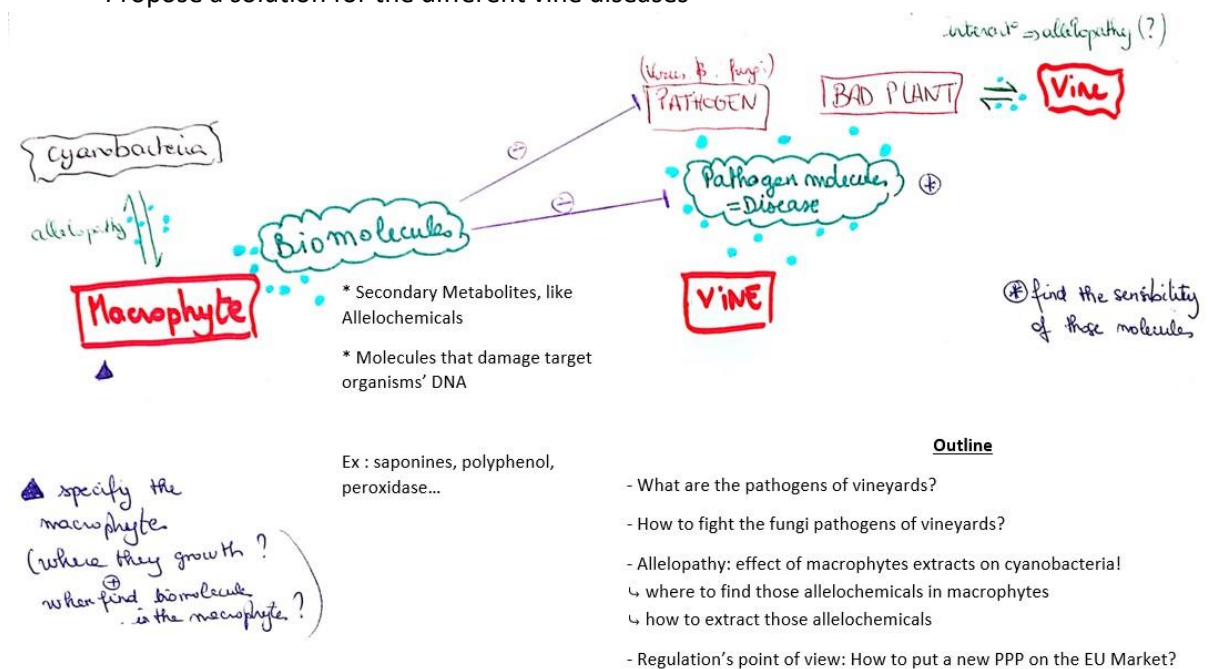 Propose a solution for the different vine diseases
interact° => allelopathy (?)
(Virus, B, fungi)
PATHOGEN
BAD PLANT
Vine
Cyanobacteria
allelopathy
Biomolecules
⊖
⊖
Pathogen molecules
= Disease
Macrophyte
VINE
* Secondary Metabolites, like
Allelochemicals
* Molecules that damage target
organisms' DNA
Ex : saponines, polyphenol,
peroxidase...
* find the sensibility
of those molecules
specify the
macrophyte
(where they growth ?
+
when find biomolecule
in the macrophyte ?)
Outline
- What are the pathogens of vineyards?
- How to fight the fungi pathogens of vineyards?
- Allelopathy: effect of macrophytes extracts on cyanobacteria!
↳ where to find those allelochemicals in macrophytes
↳ how to extract those allelochemicals
- Regulation's point of view: How to put a new PPP on the EU Market?